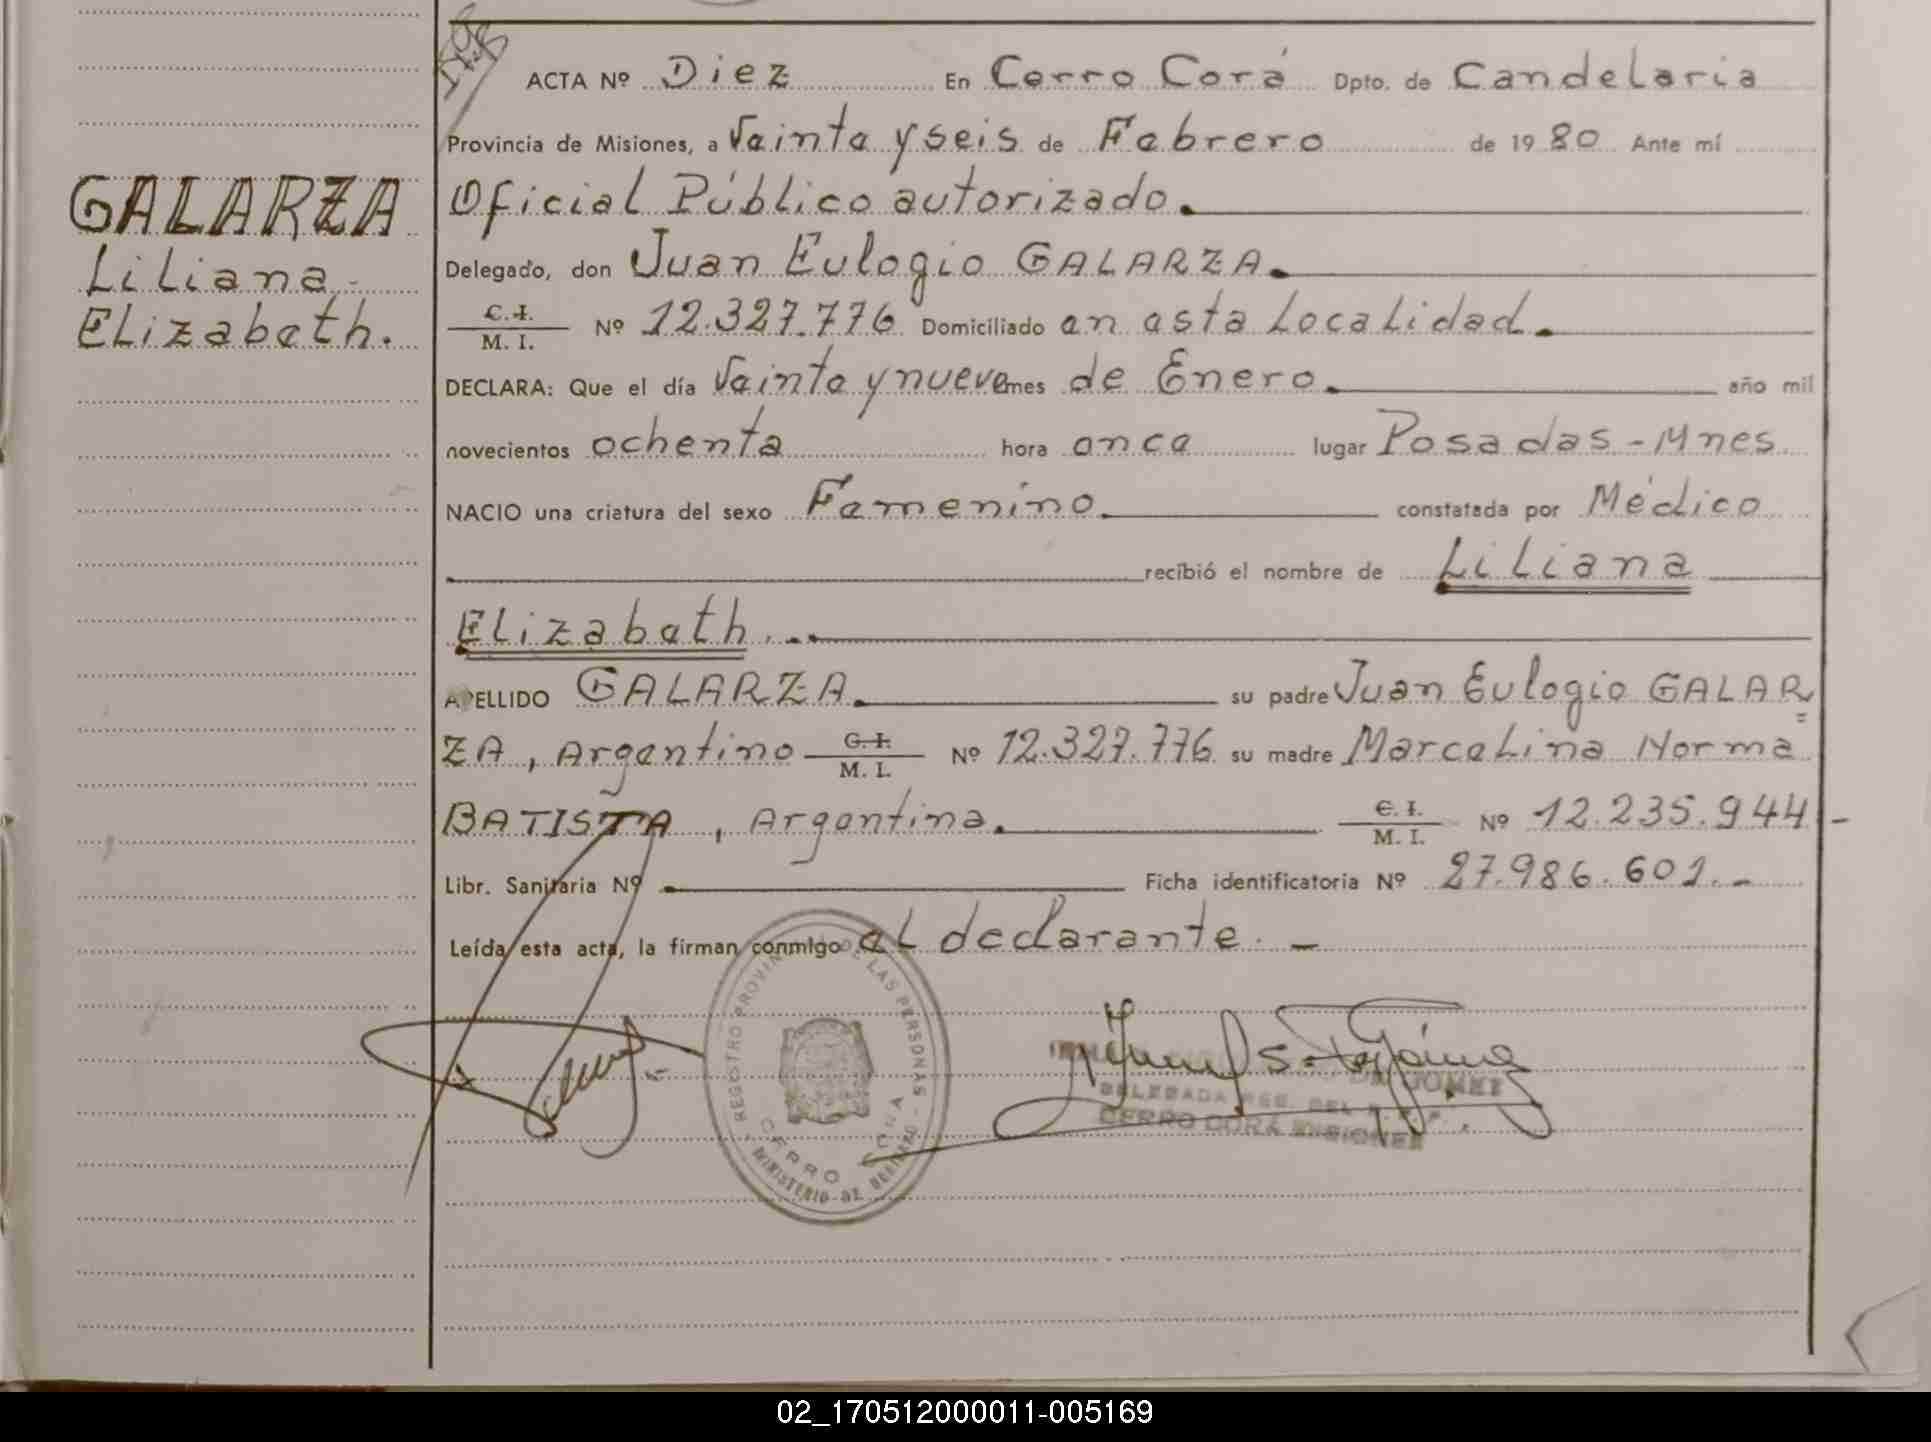 ACTA Nº Diez En Cerro Corá Dpto. de Candelaria
Provincia de Misiones, a Veinte y seis de Febrero de 19 80 Ante mí
Oficial Público autorizado.
Delegado, don Juan Eulogio GALARZA.
C. I. / M. I. Nº 12.327.776 Domiciliado en esta Localidad.
DECLARA: Que el día Veinte y nueve mes de Enero. año mil
novecientos ochenta hora once lugar Posadas - Mnes.
NACIO una criatura del sexo Femenino. constatada por Médico
recibió el nombre de Liliana
Elizabeth.
APELLIDO GALARZA. su padre Juan Eulogio GALAR=
ZA, Argentino C. I. / M. I. Nº 12.327.776 su madre Marcelina Norma
BATISTA, Argentina. C. I. / M. I. Nº 12.235.944 -
Libr. Sanitaria Nº Ficha identificatoria Nº 27.986.601.-
Leída esta acta, la firman conmigo el declarante. -
GALARZA
Liliana
Elizabeth.
REGISTRO PROVINCIAL DE LAS PERSONAS
CERRO CORA
MINISTERIO DE GOBIERNO
DE GOMEZ
DELEGADA
CERRO CORA MISIONES
02_170512000011-005169